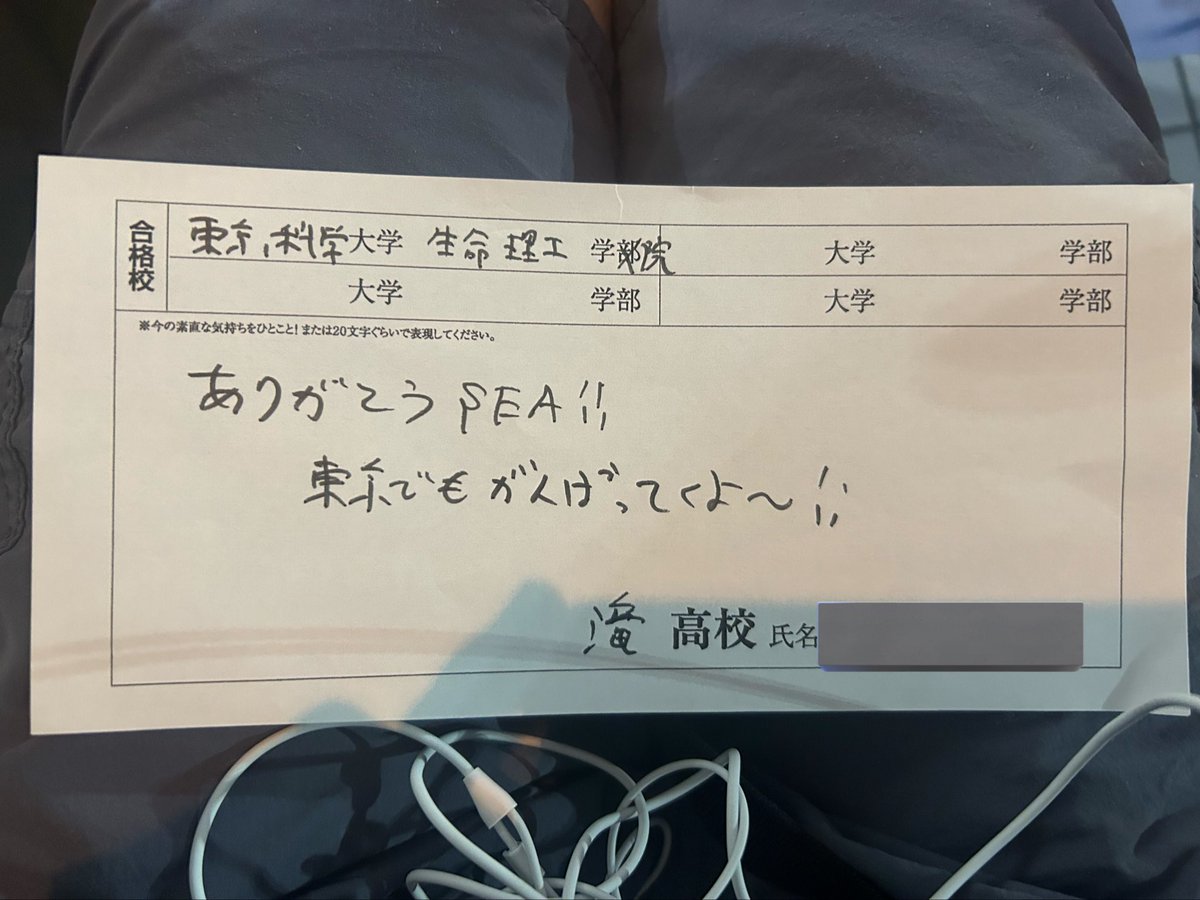 合格校
東京科学大学 生命理工 学部院 大学 学部
大学 学部 大学 学部
※今の素直な気持ちをひとこと!または20文字ぐらいで表現してください。
ありがとう SEA!!
東京でもがんばってくよ〜!!
滝 高校 氏名